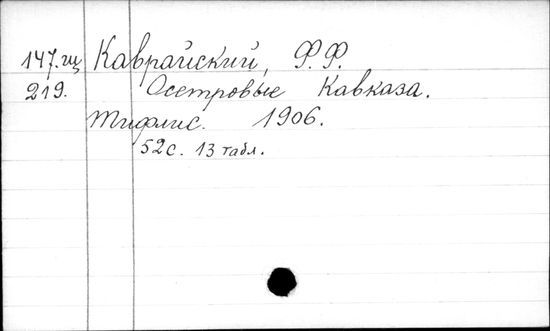 147.щ Каврайский, Ф.Ф.
219. Осетровые Кавказа.
Тифлис. 1906.
52с. 13 табл.